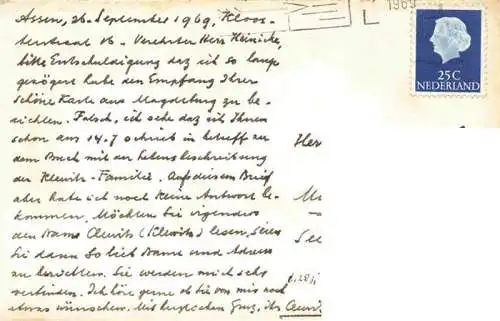 Assen, 26. September 1969, Kloos-
terstraat 16. Verehrter Herr Heinicke,
bitte Entschuldigung daz ich so lang
gezögert habe den Empfang Ihrer
schöne Karte aus Magdeburg zu be-
richten. Falsch, ich sehe daz ich Ihnen
schon aus 14.7 schrieb in betreff zu
dem Buch mit der Lebensbeschreibung
der Klewits-Familie. Auf diesem Brief
aber habe ich noch keine Antwort be-
kommen. Möchten Sie irgendwo
den Name Clewits (Klewitz) lesen, seien
Sie dann so lieb Name und Adresse
zu berichten. Sie werden mich sehr
verbinden. Ich höre gerne ob Sie von mir noch
etwas wünschen. Mit herzlichen Grusz, Ihr Clewi
1969
25C
NEDERLAND
Her
See